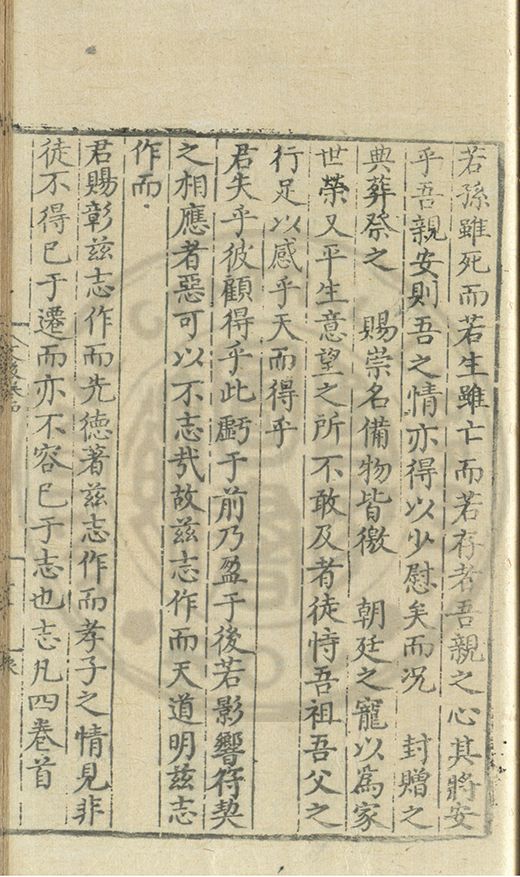 若孫雖死而若生雖亡而若存者吾親之心其將安
乎吾親安則吾之情亦得以少慰矣而况　封贈之
典葬祭之　賜崇名備物皆徼　朝廷之寵以爲家
世榮又平生意望之所不敢及者徒恃吾祖吾父之
行足以感乎天而得乎
君失乎彼顧得乎此虧于前乃盈于後若影響符契
之相應者惡可以不志㢤故兹志作而天道明兹志
作而
君賜彰兹志作而先徳著兹志作而孝子之情見非
徒不得已于遷而亦不容已于志也志凡四巻首